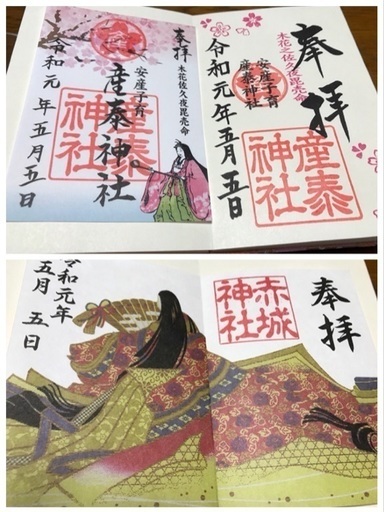 奉拝
木花之佐久夜毘売命
安産子育
産泰神社
産泰神社
令和元年五月五日
奉拝
木花佐久夜毘売命
安産子育
産泰神社
産泰神社
令和元年五月五日
奉拝
赤城神社
令和元年
五月五日